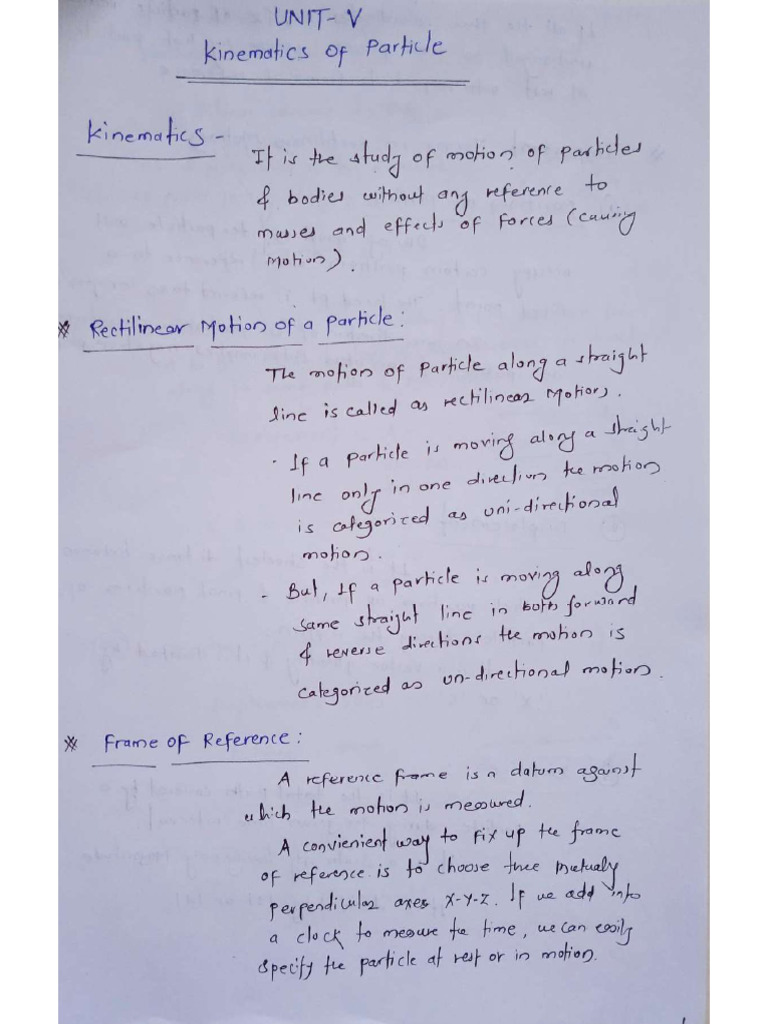 UNIT-V
Kinematics of Particle
Kinematics -
It is the study of motion of particles
& bodies without any reference to
masses and effects of forces (causing
motion).
Rectilinear Motion of a particle:
The motion of particle along a straight
line is called as rectilinear Motion.
· If a particle is moving along a straight
line only in one direction the motion
is categorized as uni-directional
motion.
- But, If a particle is moving along
same straight line in both forward
& reverse directions the motion is
categorized as un-directional motion.
Frame of Reference:
A reference frame is a datum against
which the motion is measured.
A convienient way to fix up the frame
of reference is to choose three mutually
perpendicular axes X-Y-Z. If we add into
a clock to measure the time, we can easily
specify the particle at rest or in motion.